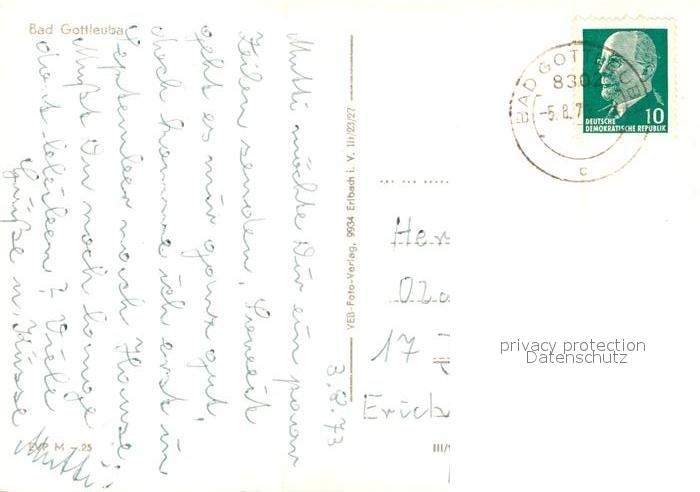 Bad Gottleuba
3.8.73
Mutti möchte Dir ein paar
Zeilen senden. Soweit
geht es mir ganz gut,
doch komme ich erst im
September nach Hause.
Mußt Du noch lange
dort bleiben? Viele
Grüße u. Küsse
Mutti
EVP M -.25
VEB-Foto-Verlag, 9934 Erlbach i. V. III/23/27
III/
BAD GOTTLEUBA
8302
-5.8.7
c
DEUTSCHE
DEMOKRATISCHE REPUBLIK
10
Her
17
Erich
privacy protection
Datenschutz